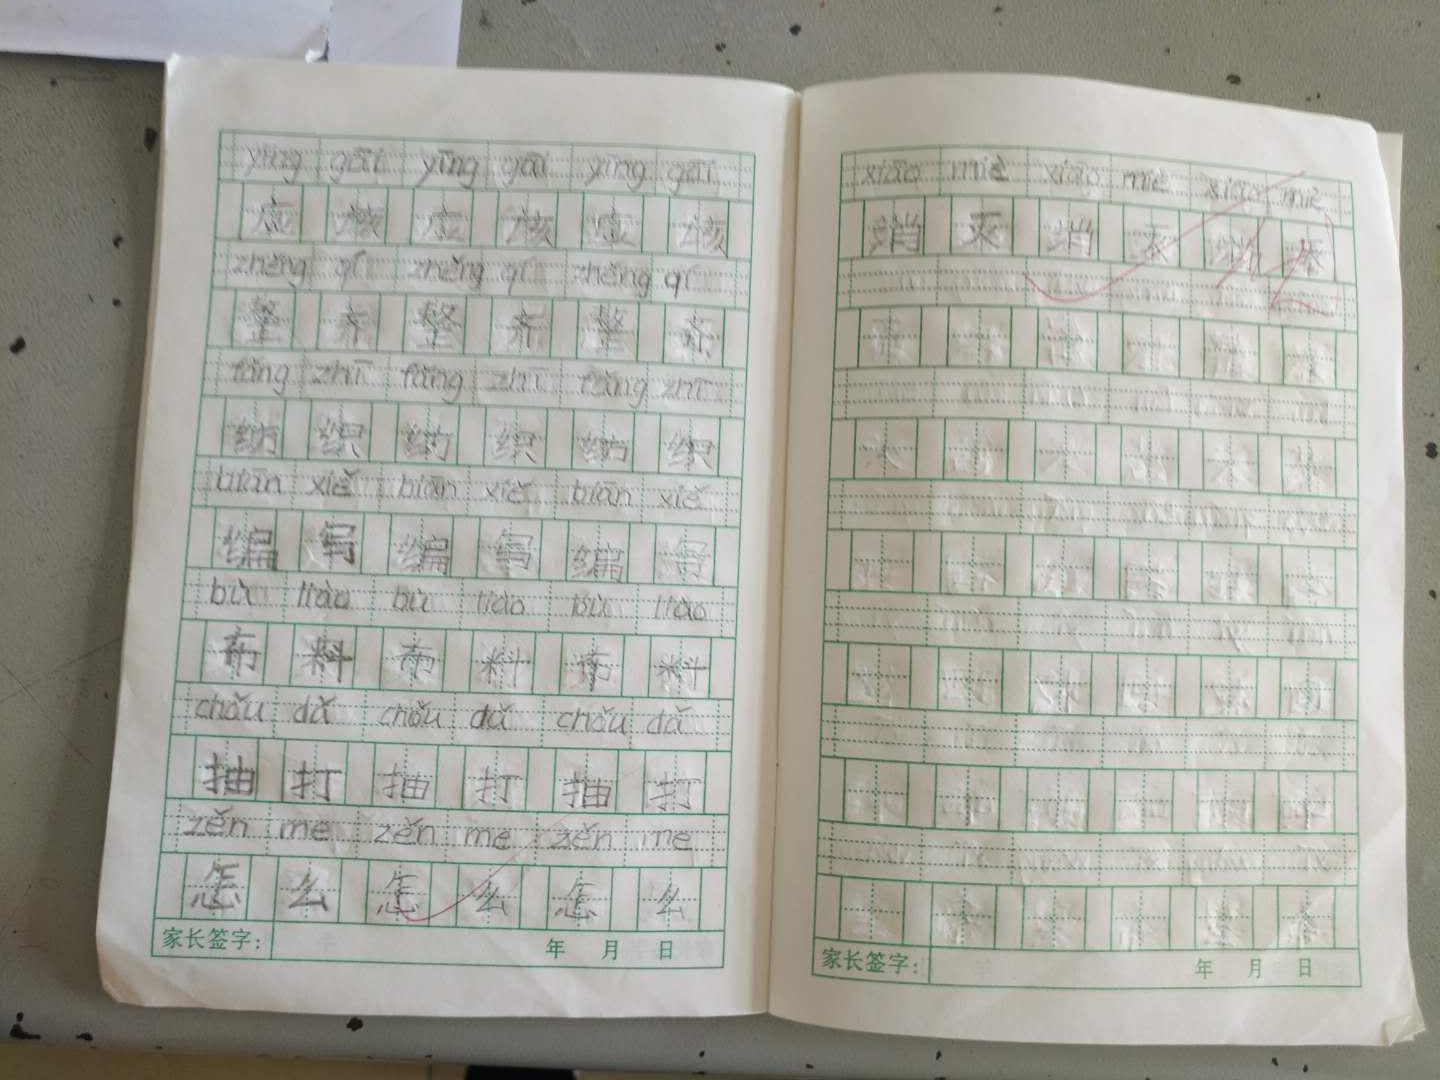 yīng gāi yīng gāi yīng gāi
应 该 应 该 应 该
zhěng qí zhěng qí zhěng qí
整 齐 整 齐 整 齐
fǎng zhī fǎng zhī fǎng zhī
纺 织 纺 织 纺 织
biān xiě biān xiě biān xiě
编 写 编 写 编 写
bù liào bù liào bù liào
布 料 布 料 布 料
chǒu dǎ chǒu dǎ chǒu dǎ
抽 打 抽 打 抽 打
zěn me zěn me zěn me
怎 么 怎 么 怎 么
家长签字： 年 月 日
xiāo miè xiāo miè xiāo miè
消 灭 消 灭
家长签字： 年 月 日